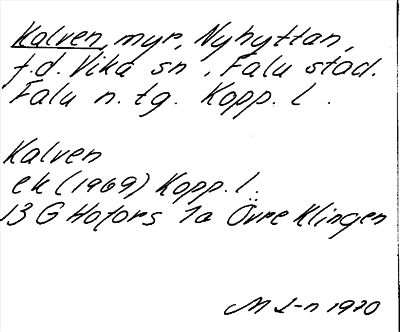 Kalven, myr, Nyhyttan,
f.d. Vika sn, Falu stad.
Falu n. tg. Kopp. l.
Kalven
ek (1969) Kopp. l.
13 G Hofors 7a Övre Klingen
M L-n 1970